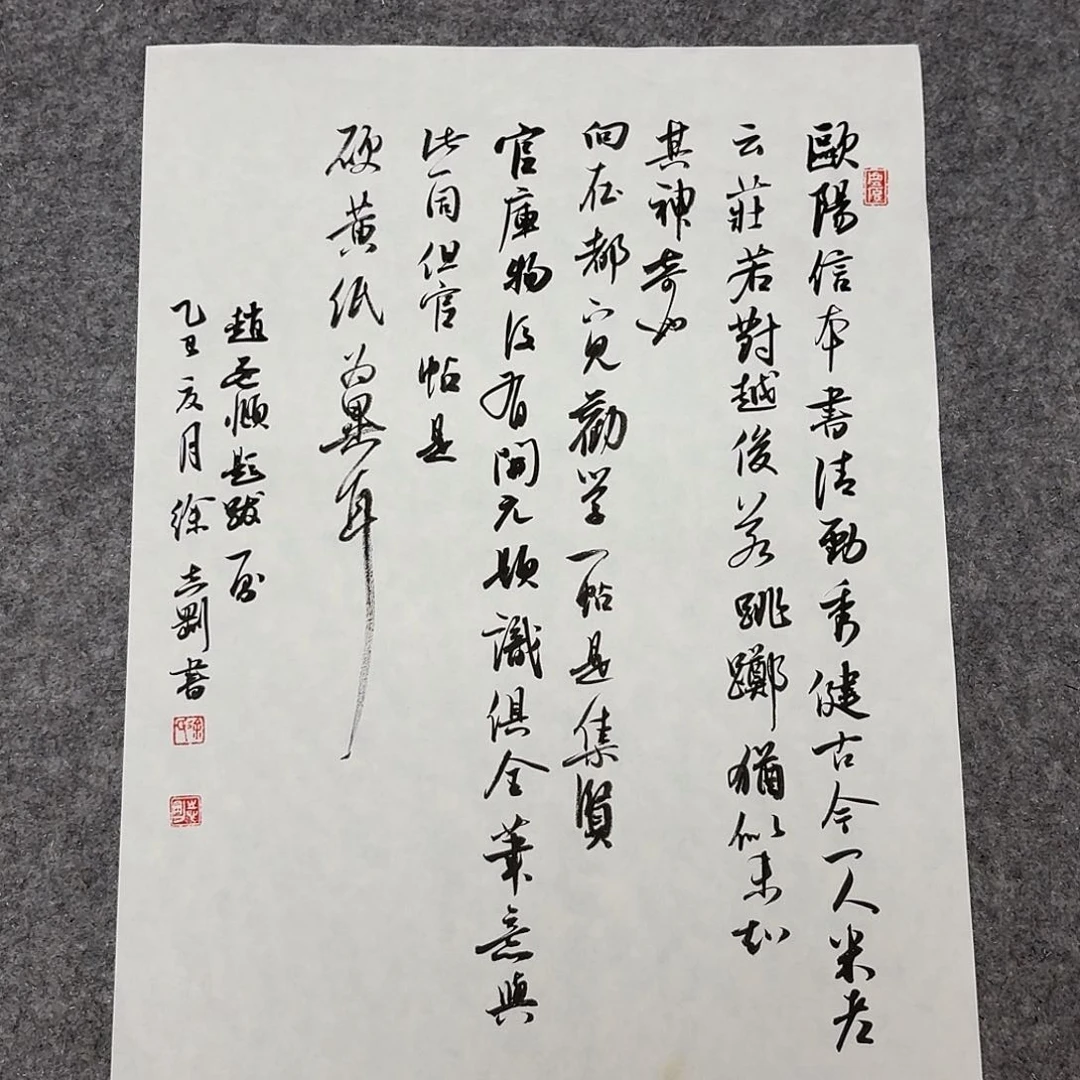 歐陽信本書清勁秀健古今一人米老
云莊若對越俊若跳躑猶似未知
其神奇也
向在都下見勸学一帖是集賢
官庫物後有開元題識俱全筆意與
此同但官帖是
硬黄紙为異耳
趙孟頫題跋一則
乙巳亥月徐志剛書